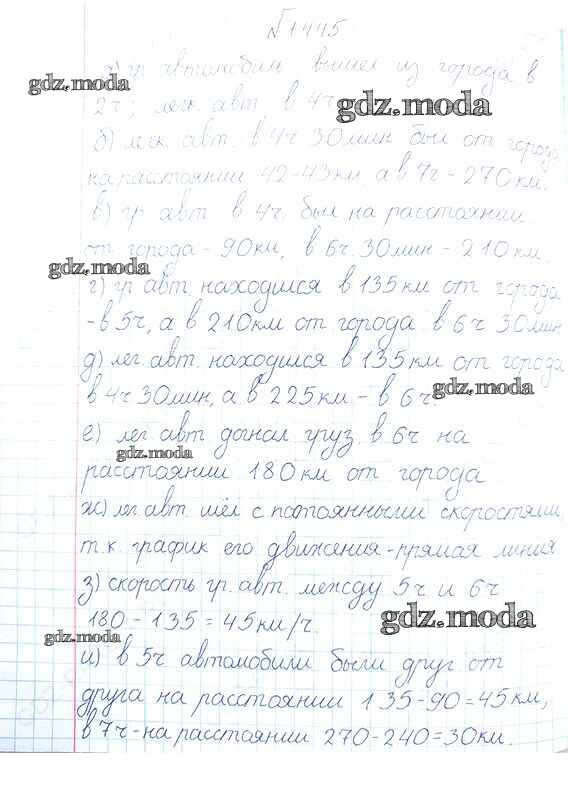 №1445
а) гр. автомобиль вышел из города в
gdz.moda
2ч; легк. авт. в 4ч
gdz.moda
б) легк. авт. в 4ч 30мин был от города
на расстоянии 42-43км, а в 7ч - 270км.
в) гр. авт. в 4ч. был на расстоянии
от города - 90км, в 6ч. 30мин - 210км.
gdz.moda
г) гр. авт. находился в 135км от города
- в 5ч, а в 210км от города в 6ч 30мин
д) лег. авт. находился в 135км от города
в 4ч 30мин, а в 225км - в 6ч.
gdz.moda
е) лег. авт. догнал груз. в 6ч на
gdz.moda
расстоянии 180км от города
ж) лег. авт. шёл с постоянными скоростями,
т.к. график его движения - прямая линия
з) скорость гр. авт. между 5ч и 6ч
180 - 135 = 45км/ч.
gdz.moda
gdz.moda
и) в 5ч автомобили были друг от
друга на расстоянии 135-90=45км,
в 7ч - на расстоянии 270-240=30км.